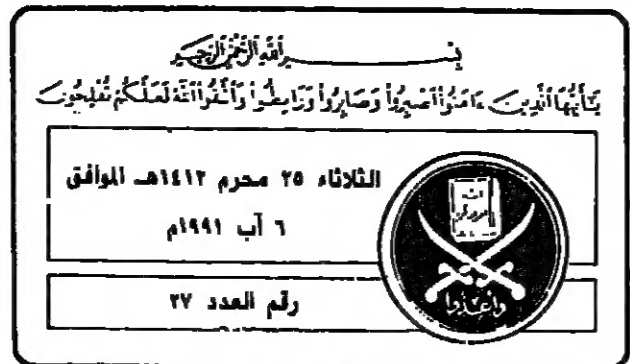 بِسْمِ اللَّهِ الرَّحْمَٰنِ الرَّحِيمِ
يَٰٓأَيُّهَا ٱلَّذِينَ ءَامَنُوا۟ ٱصْبِرُوا۟ وَصَابِرُوا۟ وَرَابِطُوا۟ وَٱتَّقُوا۟ ٱللَّهَ لَعَلَّكُمْ تُفْلِحُونَ
الثلاثاء ٢٥ محرم ١٤١٢هـ الموافق
٦ آب ١٩٩١م
رقم العدد ٢٧
وأعدوا